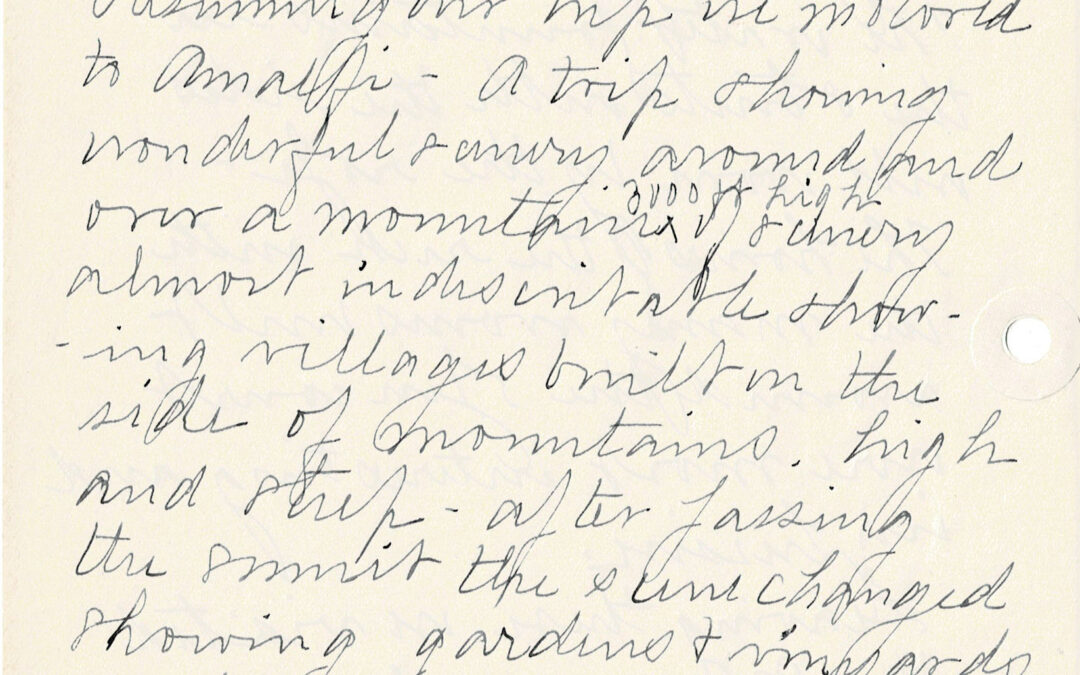 Resuming our trip we motored
to Amalfi - A trip showing
wonderful scenery around and
over a mountain 3000 ft high x of scenery
almost indiscribable show-
-ing villages built on the
side of mountains. high
and steep - after passing
the summit the scene changed
showing gardens & vinyards